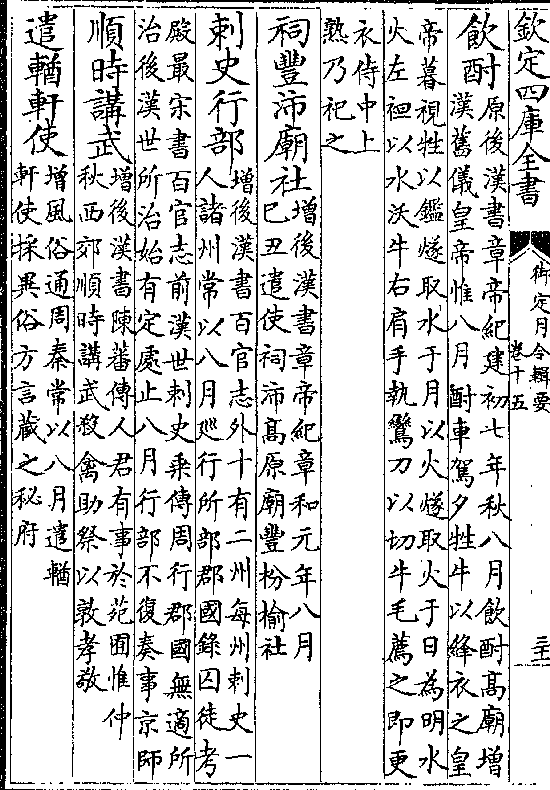 欽定四庫全書
御定月令輯要
卷十五
三十一
飲酎原後漢書章帝紀建初七年秋八月飲酎髙廟增
漢舊儀皇帝惟八月酎車駕夕牲牛以絳衣之皇
帝暮視牲以鑑燧取水于月以火燧取火于日為明水
火左袒以水沃牛右肩手執鸞刀以切牛毛薦之即更
衣侍中上
熟乃祀之
祠豐沛廟社增後漢書章帝紀章和元年八月
己丑遣使祠沛髙原廟豐枌榆社
刺史行部增後漢書百官志外十有二州每州刺史一
人諸州常以八月廵行所部郡國錄囚徒考
殿最宋書百官志前漢世刺史乘傳周行郡國無適所
治後漢世所治始有定處止八月行部不復奏事京師
順時講武增後漢書陳蕃傳人君有事於苑囿惟仲
秋西郊順時講武殺禽助祭以敦孝敬
遣輶軒使增風俗通周秦常以八月遣輶
軒使採異俗方言藏之秘府